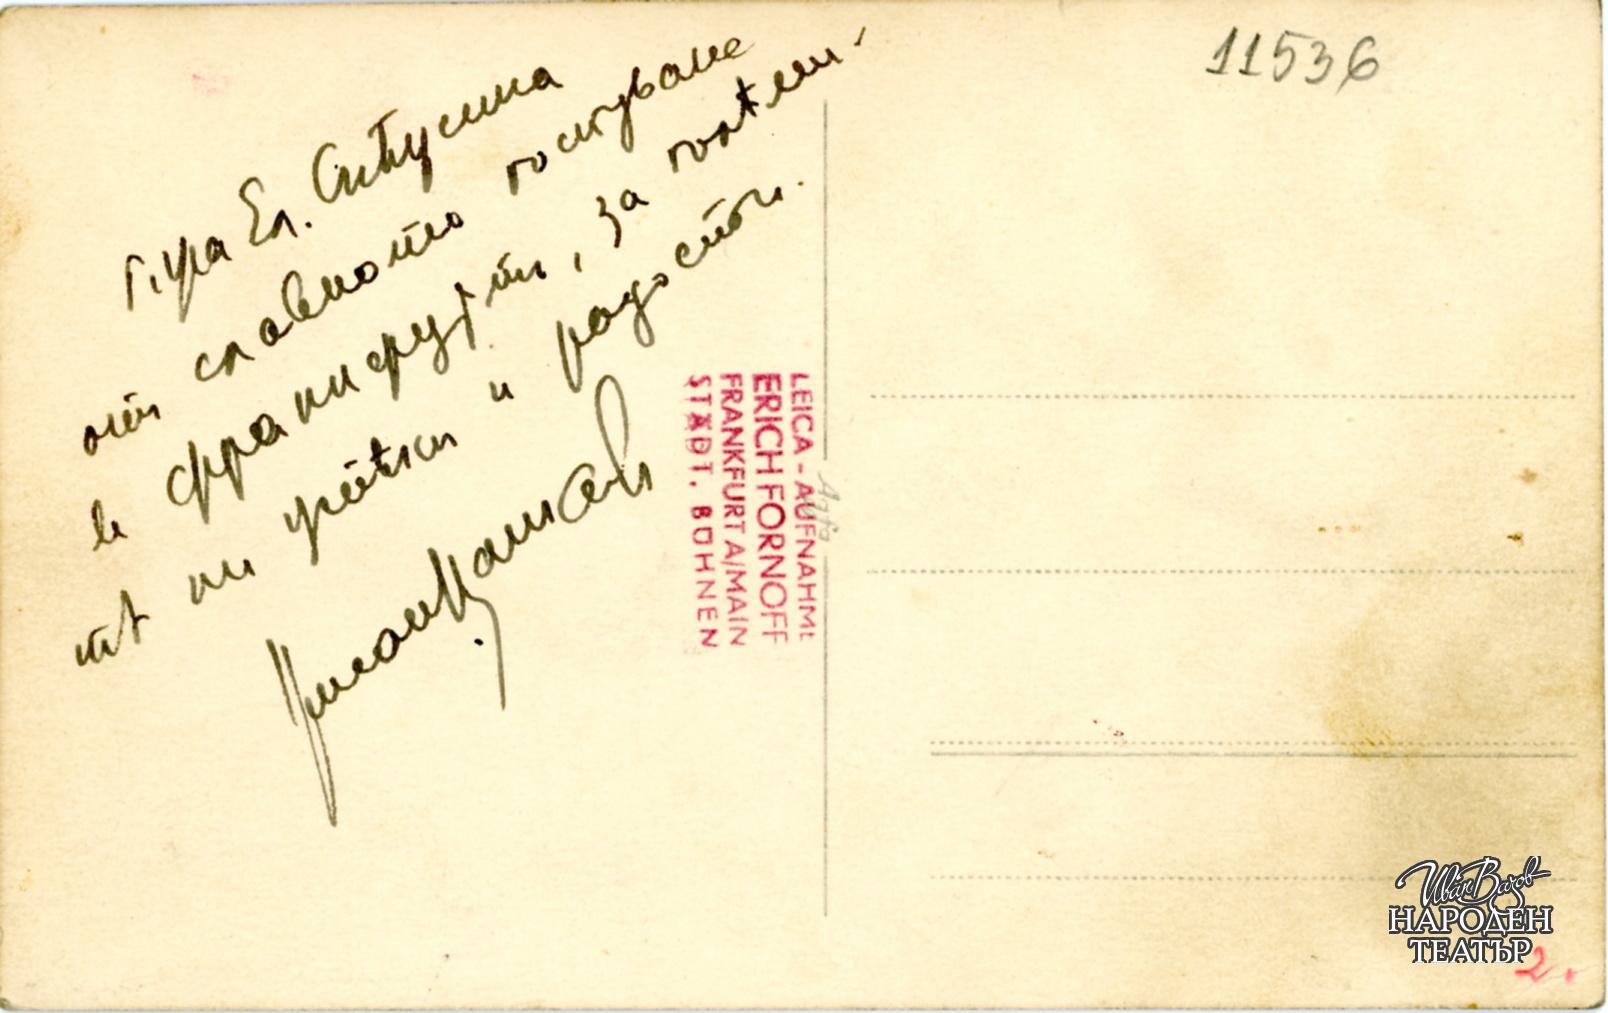 11536
Г-ца Ел. Снѣжина
отъ славното гостуване
въ Франкфуртъ, за голѣми-
тѣ ни грижи и радости.
LEICA - AUFNAHME
ERICH FORNOFF
FRANKFURT A/MAIN
STÄDT. BÜHNEN
Agfa
Иван Вазов
НАРОДЕН
ТЕАТЪР
2.